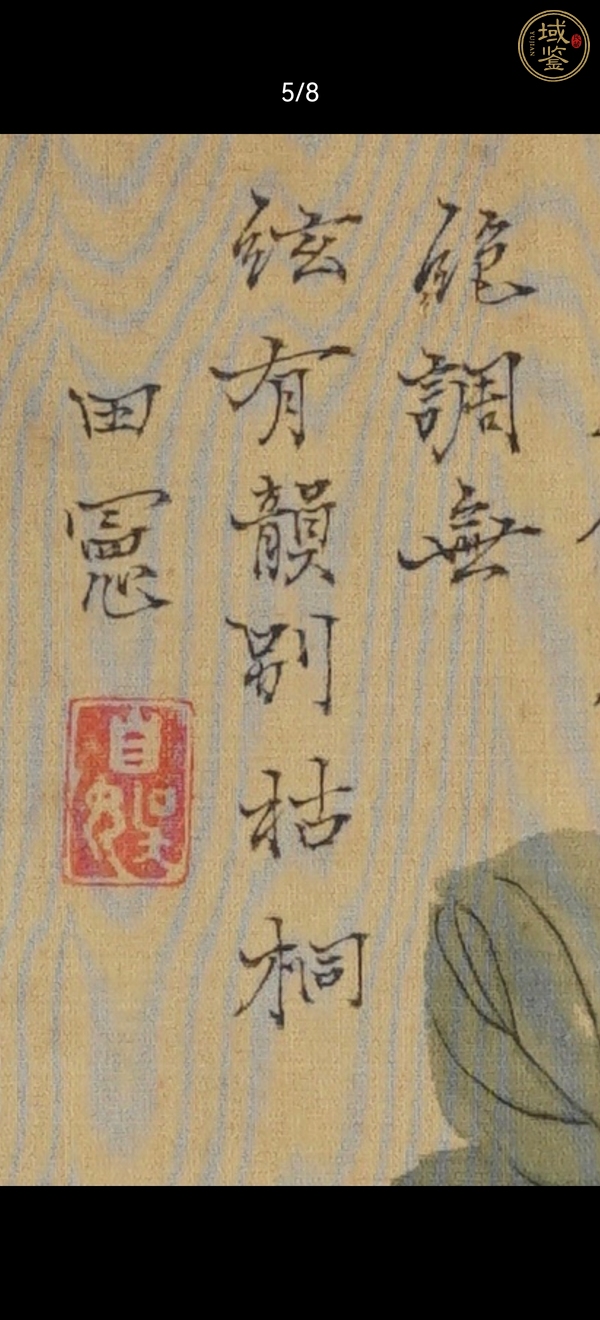 域鉴
YUJIAN
5/8
絕調無
絃有韻別枯桐
田憲